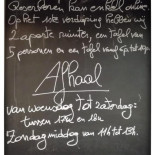 Reserveren kan enkel online
Op het 1ste verdieping hebben wij
2 aparte ruimtes, een tafel van
5 personen en een tafel vanaf 6p tot 10p
Afhaal
van woensdag tot zaterdag:
tussen 17u en 18u
Zondagmiddag van 11u tot 13u.